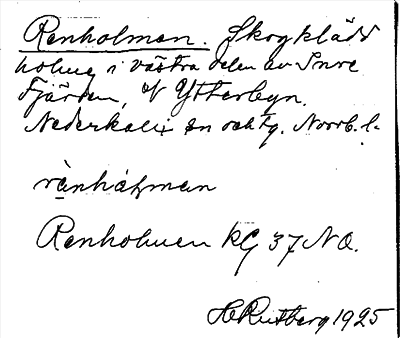 Renholmen. Skogklädd
holme i västra delen av Inre
Fjärden, af Ytterbyn.
Nederkalix sn och tg. Norrb. l.
rä̀nhåɫman
Renholmen kG 37 NO.
H Rutberg 1925